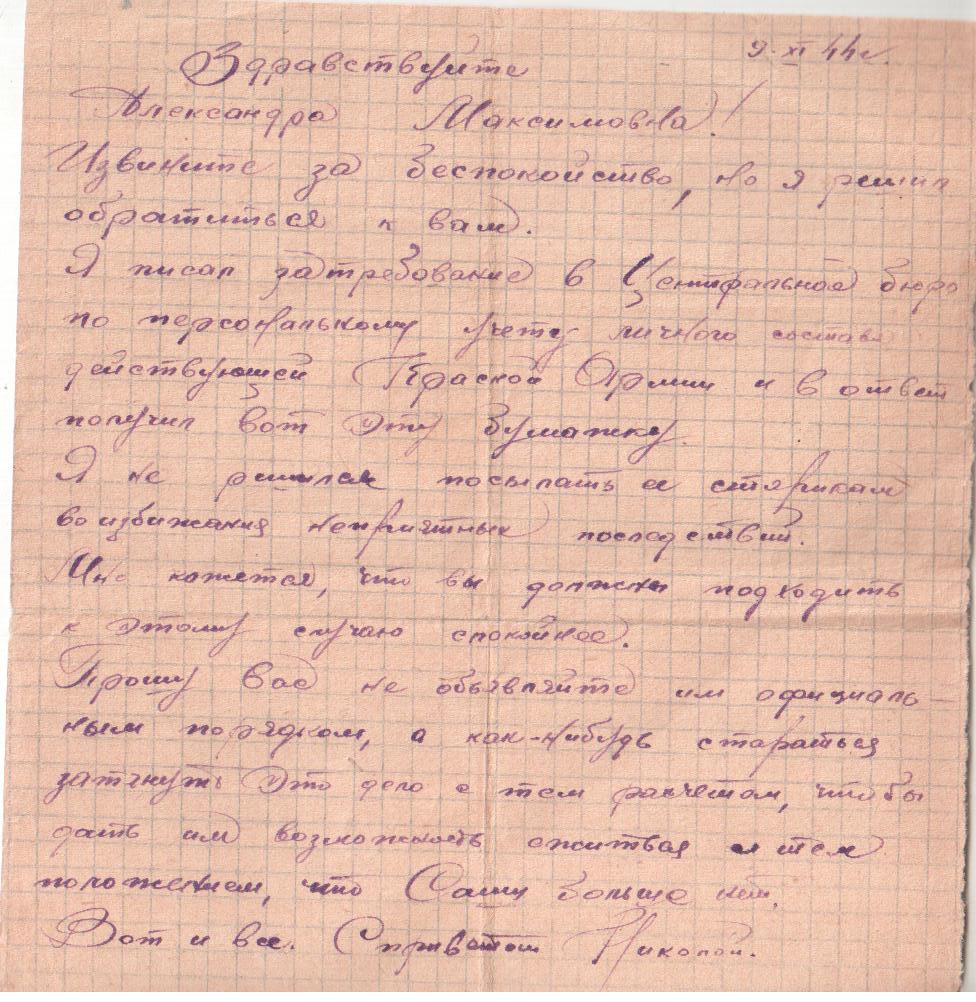 9. XI 44 г.
Здравствуйте
Александра Максимовна!
Извините за беспокойство, но я решил
обратиться к вам.
Я писал затребование в Центральное бюро
по персональному учету личного состава
действующей Красной Армии и в ответ
получил вот эту бумажку.
Я не решился посылать ее старикам
во избижания неприятных последствий.
Мне кажется, что вы должны подходить
к этому случаю спокойнее.
Прошу Вас не объявляйте им официаль-
ным порядком, а как-нибудь стараться
затянуть это дело с тем расчетом, чтобы
дать им возможность сжиться с тем
положением, что Саши больше нет.
Вот и все. С приветом Николай.